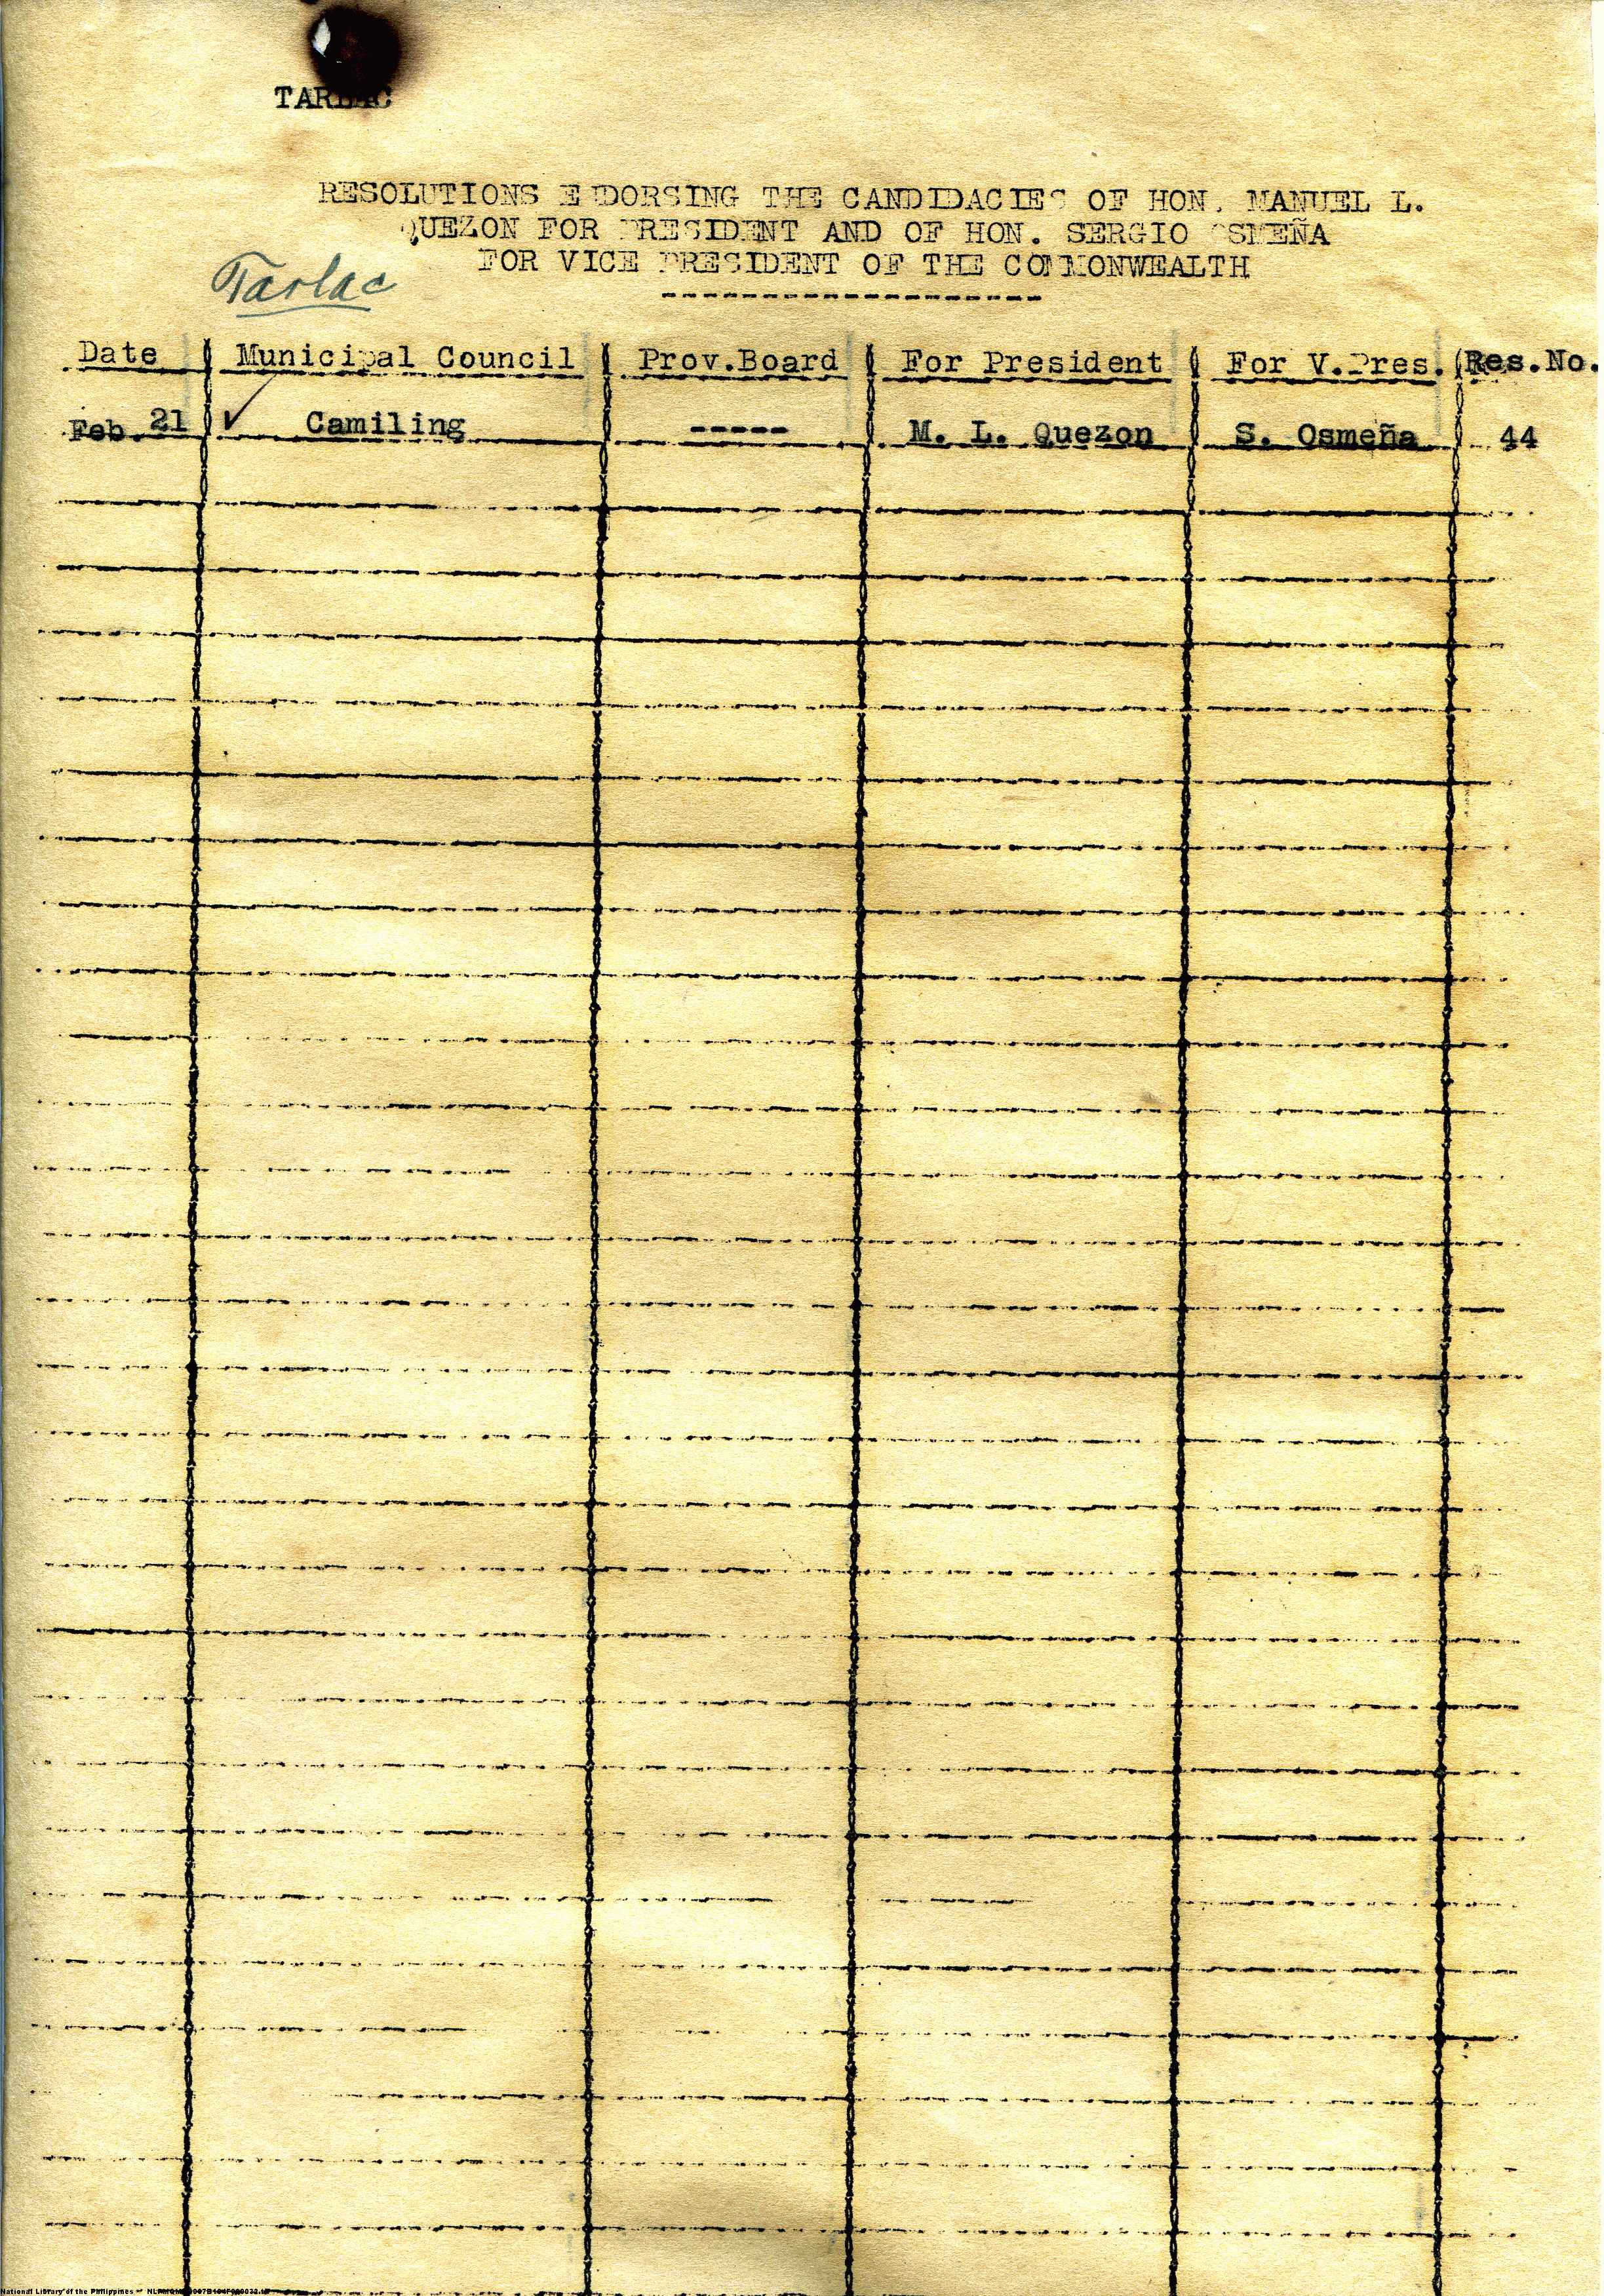 TARLAC
RESOLUTIONS ENDORSING THE CANDIDACIES OF HON. MANUEL L.
QUEZON FOR PRESIDENT AND OF HON. SERGIO OSMEÑA
FOR VICE PRESIDENT OF THE COMMONWEALTH
Tarlac
Date Municipal Council Prov.Board For President For V.Pres. Res.No.
Feb. 21 ✓ Camiling ----- M. L. Quezon S. Osmeña 44
National Library of the Philippines